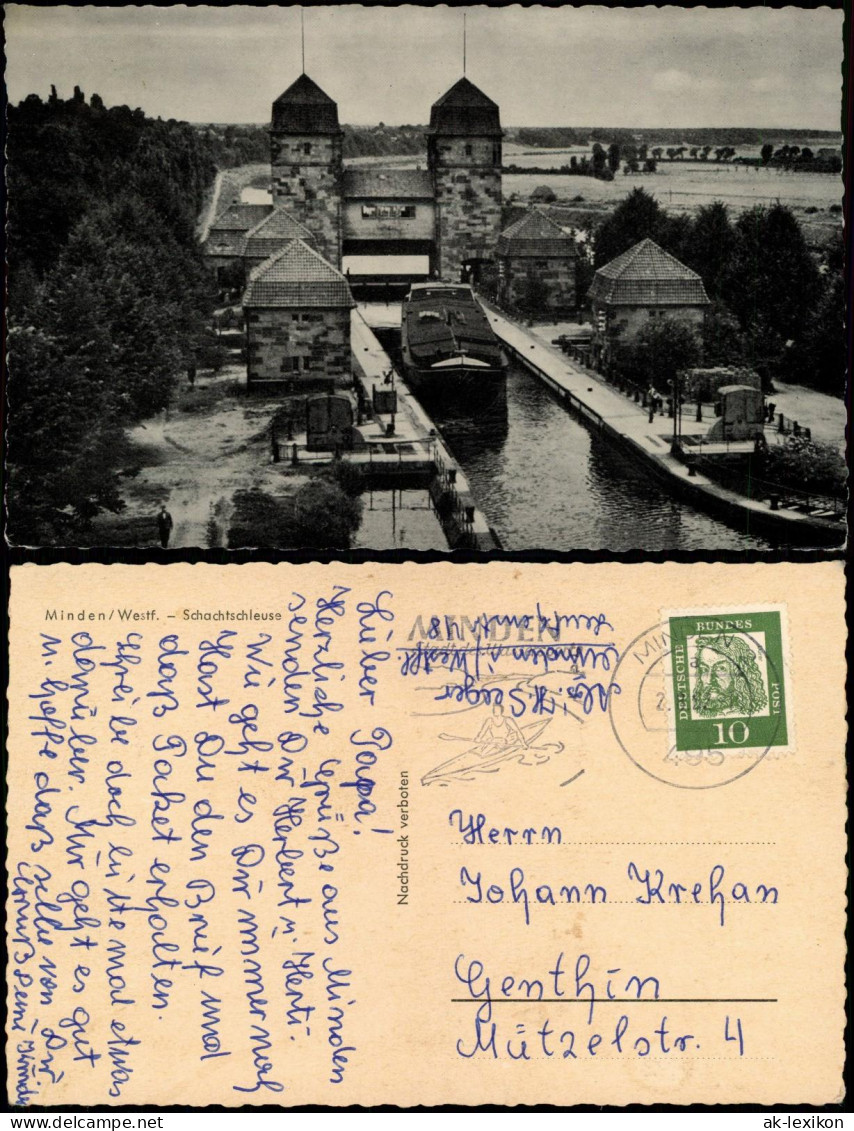 Minden/Westf. – Schachtschleuse
Lieber Papa!
Herzliche Grüße aus Minden
senden Dir Herbert u. Herti.
Wie geht es Dir immer noch
Hast Du den Brief und
daß Paket erhalten.
Schreibe doch bitte mal etwas
darüber. Mir geht es gut
u. hoffe daß selbe von Dir
Nachdruck verboten
MINDEN
Minden i/Westf.
MINDEN
a
495
DEUTSCHE
BUNDES
POST
10
Herrn
Johann Krehan
Genthin
Mützelstr. 4
ak-lexikon
ak-lexikon.com